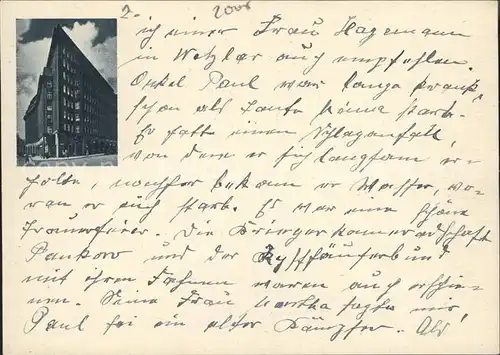 2. 2005
ich einer Frau Hagemann
in Wetzlar auch empfehlen.
Onkel Paul war lange krank,
schon als Tante starb.
Er hatte einen Schlaganfall,
von dem er sich langsam er-
holte, nachher bekam er Wasser, wo-
ran er auch starb. Es war eine schöne
Trauerfeier. Die Kriegerkameradschaft
Pankow und der Kyffhäuserbund
mit ihren Fahnen waren auch erschie-
nen. Seine Frau Martha sagte mir,
Paul sei ein alter Kämpfer. Als